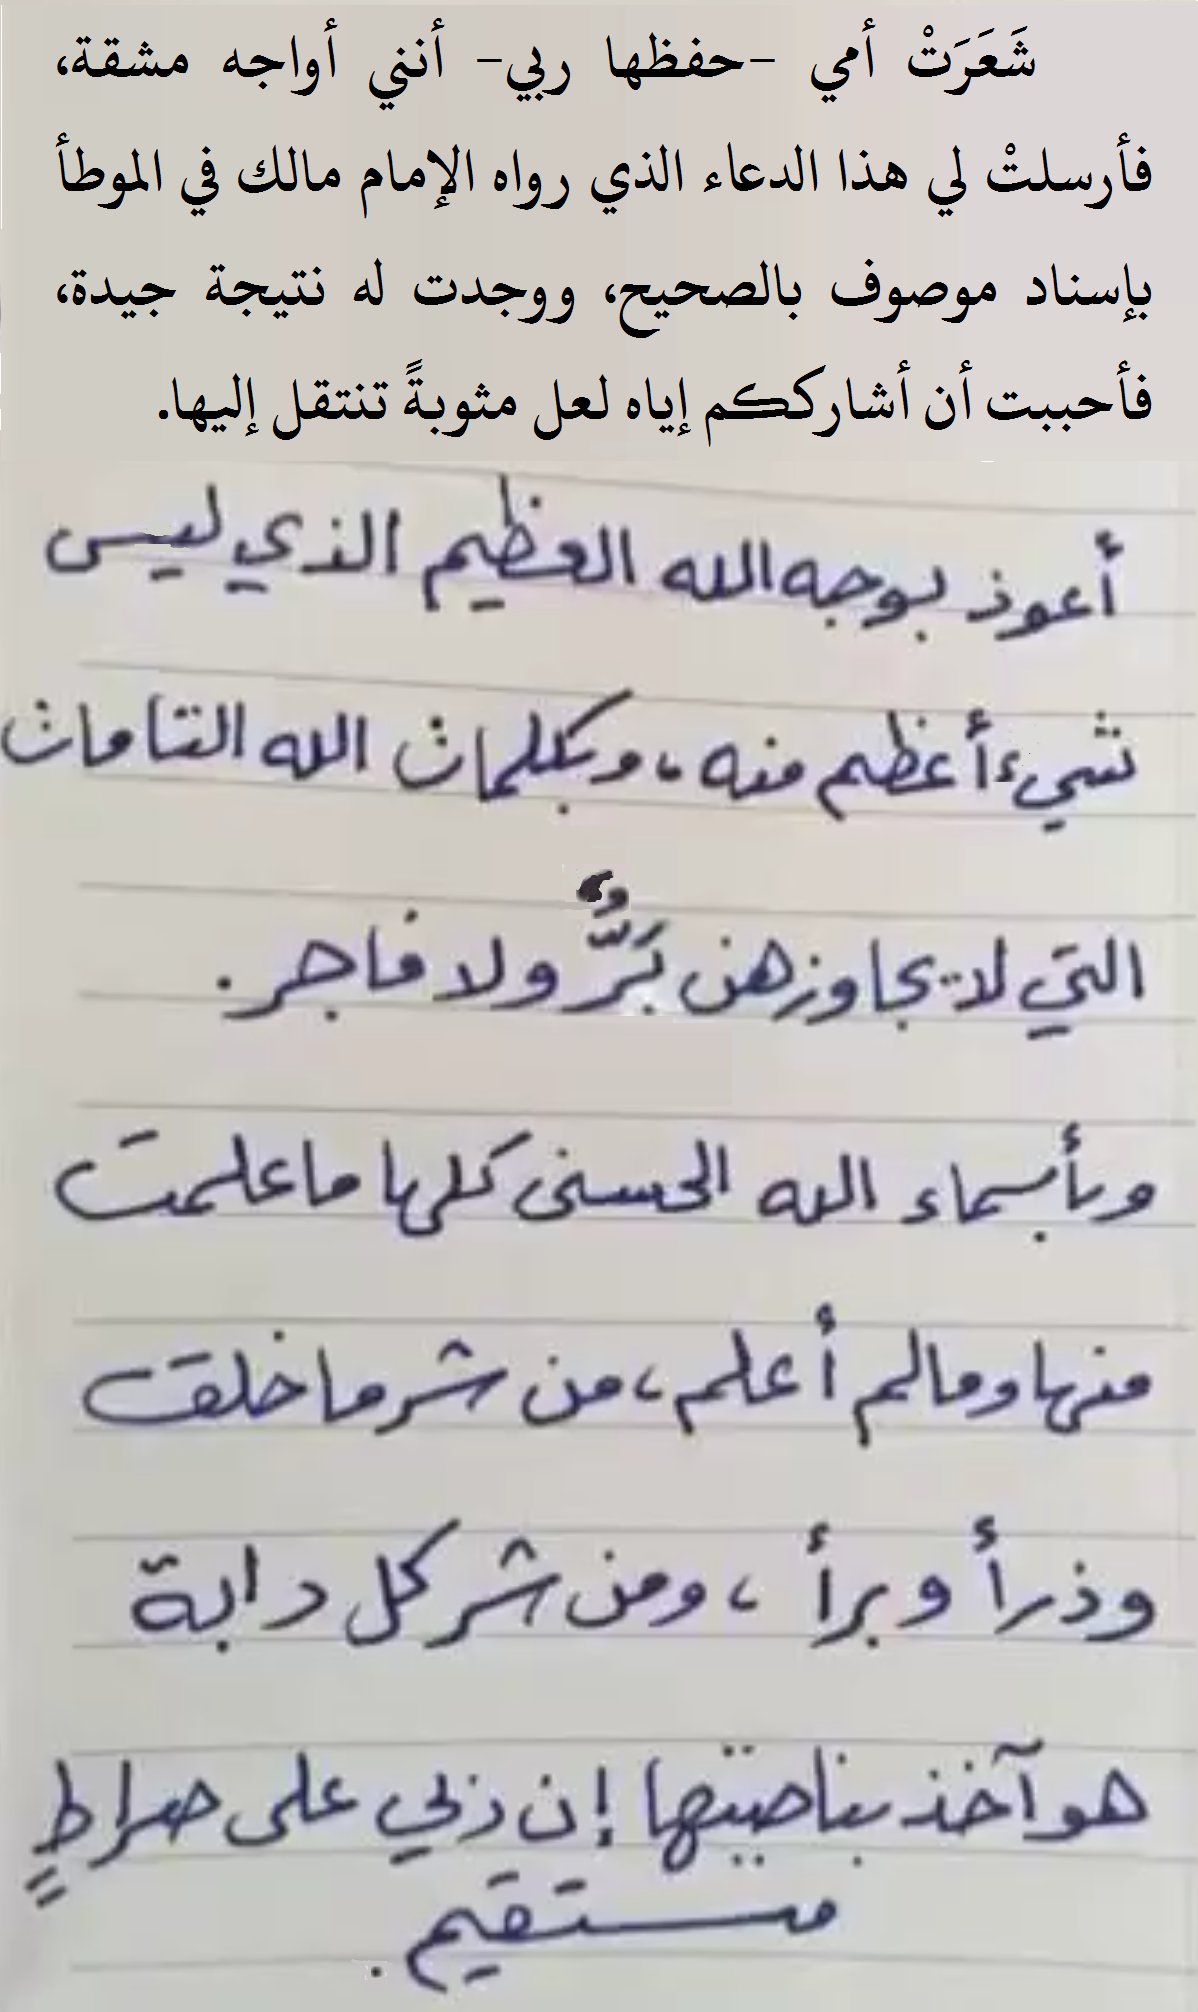 شَعَرَتْ أمي -حفظها ربي- أنني أواجه مشقة،
فأرسلتْ لي هذا الدعاء الذي رواه الإمام مالك في الموطأ
بإسناد موصوف بالصحيح، ووجدت له نتيجة جيدة،
فأحببت أن أشارككم إياه لعل مثوبةً تنتقل إليها.
أعوذ بوجه الله العظيم الذي ليس
شيء أعظم منه، وبكلمات الله التامات
التي لا يجاوزهن بَرٌّ ولا فاجر.
وبأسماء الله الحسنى كلها ما علمت
منها وما لم أعلم، من شر ما خلق
وذرأ وبرأ، ومن شر كل دابة
هو آخذ بناصيتها إن ربي على صراطٍ
مستقيم.